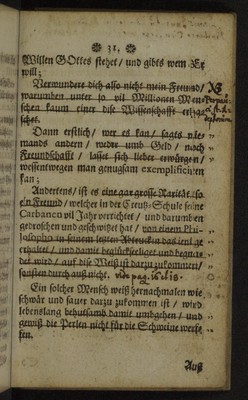 31.
Willen GOttes stehet / und gibts wem Er
will;
Verwundere dich also nicht mein Freund /
warumben unter so vil Millionen Men-
schen kaum einer dise Wissenschafft
schet.
Dann erstlich / wer es kan / sagts nie-
wands andern / weder umb Geld / noch
Freundschafft / lasset sich lieber erwürgen /
wessentwegen man genugsam exemplificiren
kan;
Andertens / ist es eine gar grosse Rarität / so
ein Freund / welcher in der Creutz-Schule seine
Carbanen vil Jahr verrichtet / und darumben
gedroschen und geschwitzet hat / von einem Phi-
losopho in seinem letzten das jenige
erhaltet / und damit beglückseeliget und begna-
det wird / auf dise Weiß ist darzu zukommen /
sonsten durch auß nicht. vide pag.
Ein solcher Mensch weiß hernachmalen wie
schwär und sauer darzu zukommen ist / wird
lebenslang behutsamb damit umbgehen / und
gewiß die Perlen nicht für die Schweine werf-
fen.
Auß